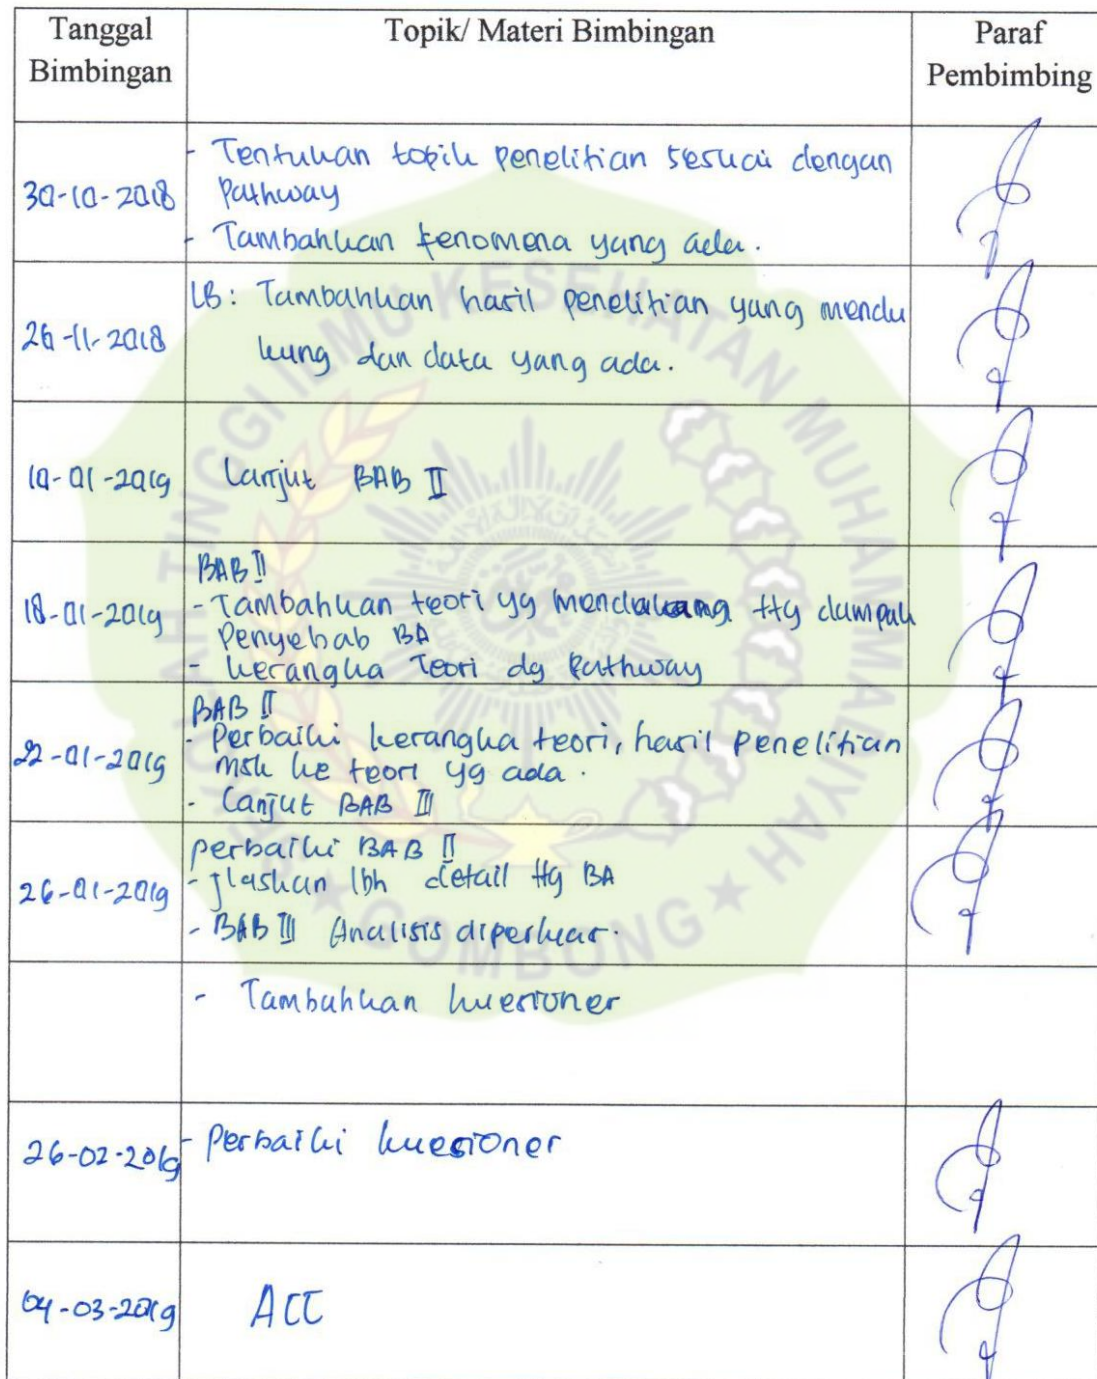 Tanggal Bimbingan
Topik/ Materi Bimbingan
Paraf Pembimbing
30-10-2018
- Tentukan topik penelitian sesuai dengan
Pathway
- Tambahkan fenomena yang ada.
26-11-2018
LB: Tambahkan hasil penelitian yang mendu
kung dan data yang ada.
10-01-2019
Lanjut BAB II
18-01-2019
BAB II
- Tambahkan teori yg mendukung ttg dampak
Penyebab BA
- Kerangka Teori dg Pathway
22-01-2019
BAB II
- Perbaiki kerangka teori, hasil penelitian
msk ke teori yg ada.
- Lanjut BAB III
26-01-2019
perbaiki BAB II
- jlaskan lbh detail ttg BA
- BAB III Analisis diperkuar.
- Tambahkan kuesioner
26-02-2019
- Perbaiki kuesioner
04-03-2019
ACC
SEKOLAH TINGGI ILMU KESEHATAN MUHAMMADIYAH
GOMBONG